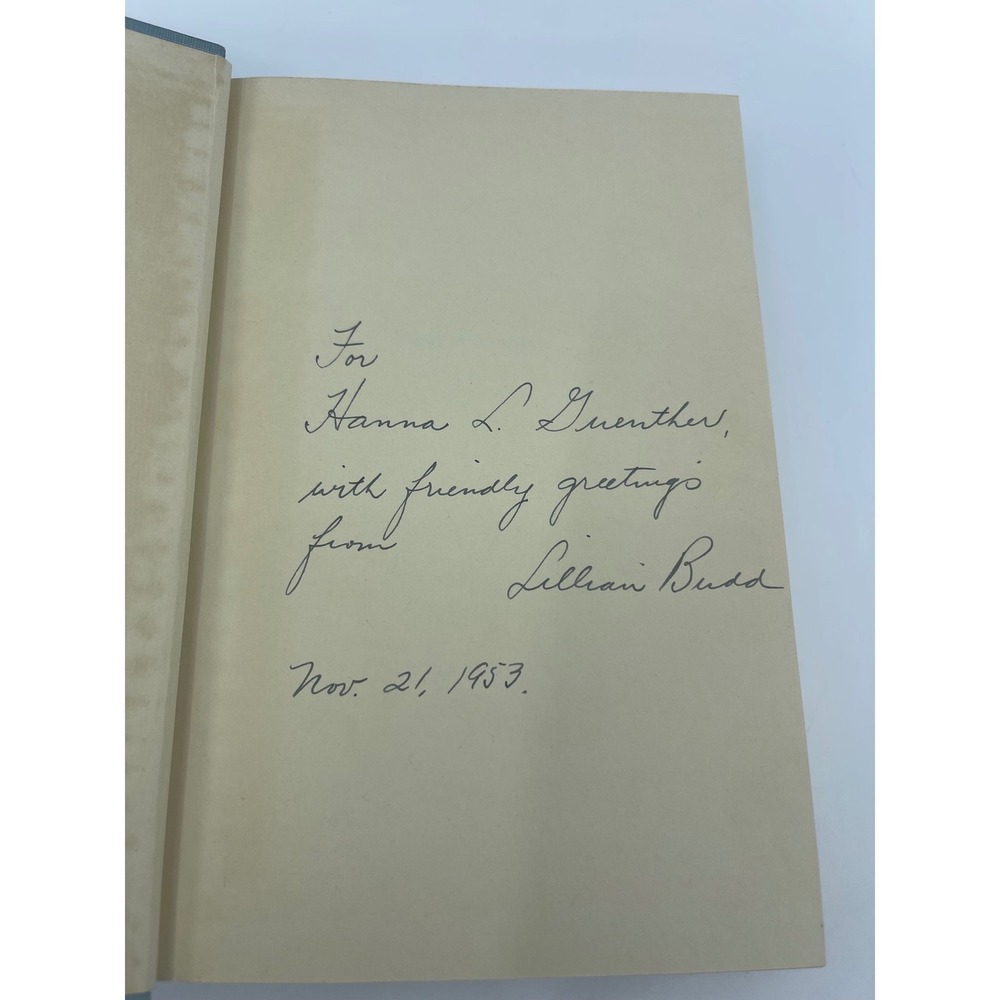 For
Hanna L. Guenther,
with friendly greetings
from
Lillian Budd
Nov. 21, 1953.